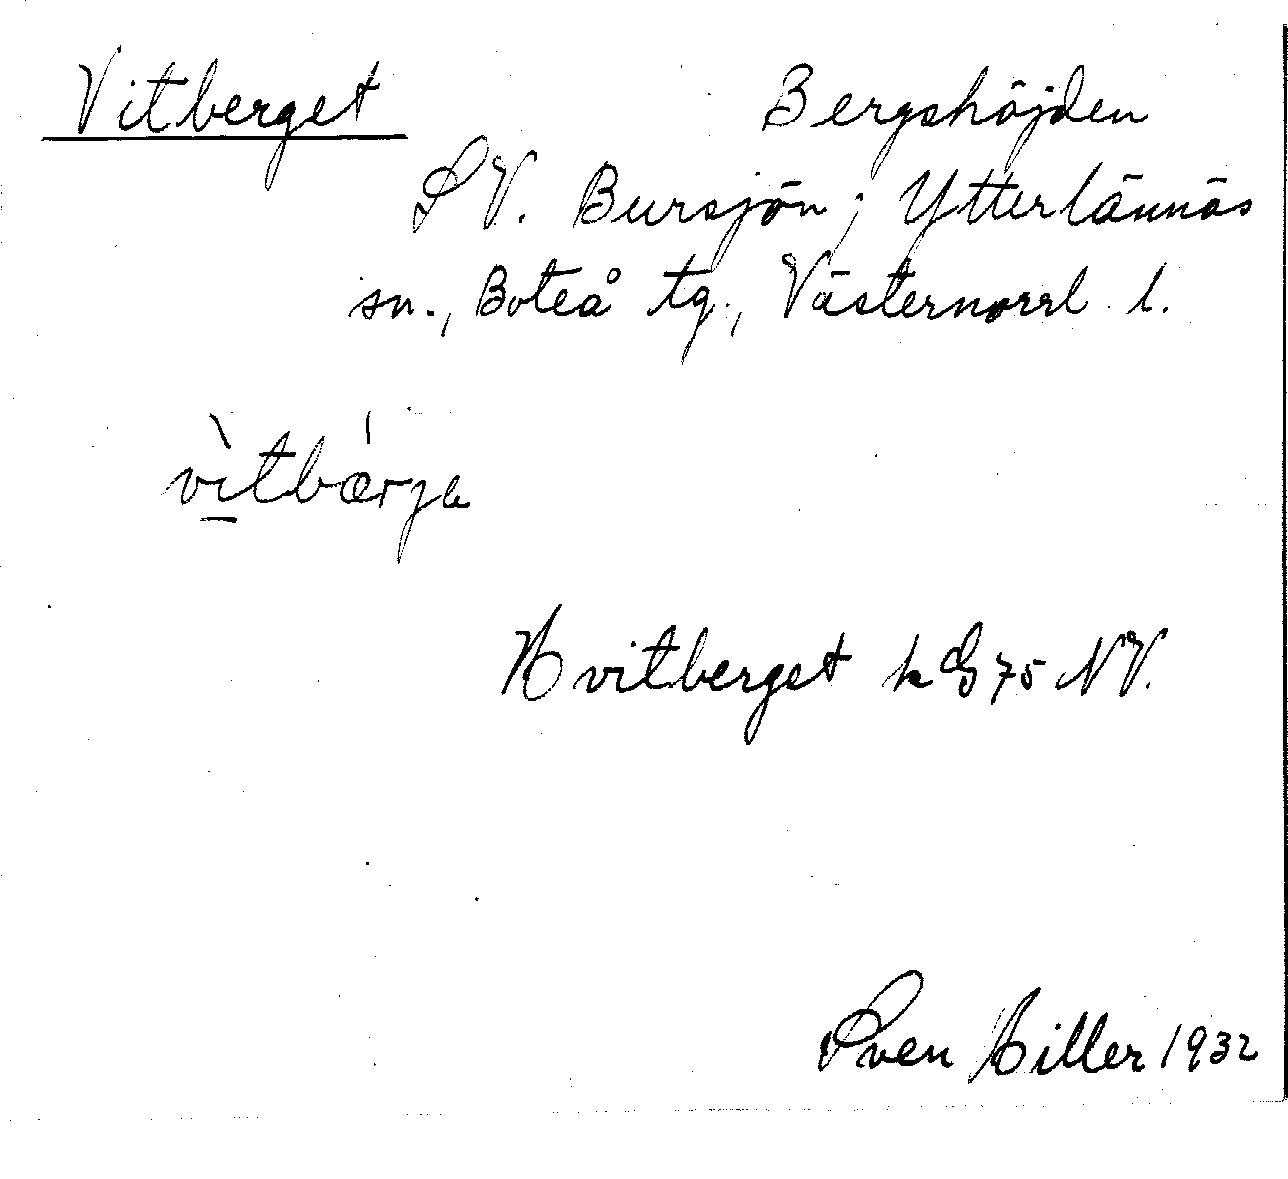 Vitberget Bergshöjden
SV. Bursjön; Ytterlännäs
sn., Boteå tg., Västernorrl l.
vìtbær̍ja
Hvitberget k G 75 NV.
Sven Hiller 1932